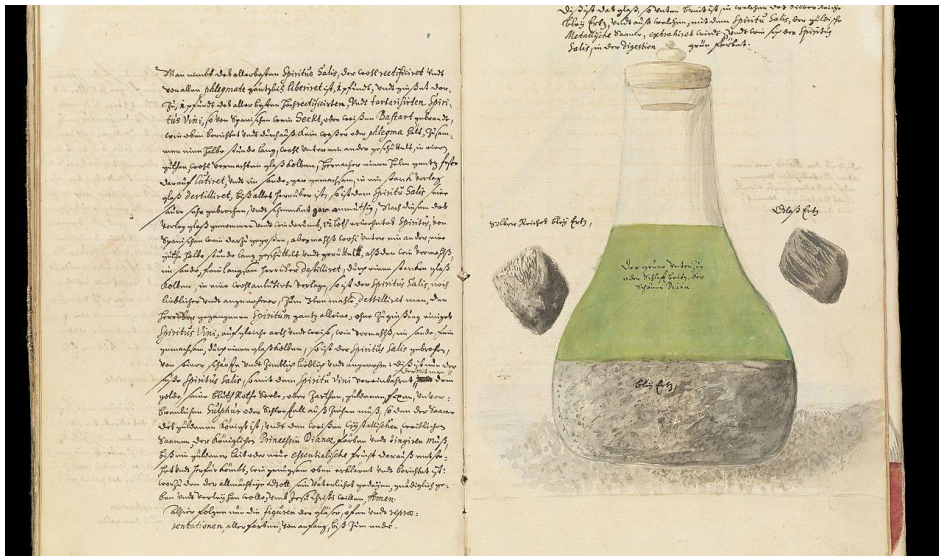 Man nimbt des allerbesten Spiritus Salis, der wohl rectificiret undt
von allen phlegmate gäntzlich liberiret ist, 1 pfundt, undt gießet dar-
zu, 1 pfundt des aller besten hochrectificirten, undt tartarisirten, Spiri-
tus Vini, so von Spanischen wein Seckt, oder weißen Bastart gebrandt,
wie oben berichtet undt durchauß kein waßer oder phlegma hatt, Zusam-
men eine halbe stunde lang, wohl unter ein ander geschüttelt, in einen
guthen wohl vermachten glaß kolben, hernacher einen helm gantz feste
darauf lutiret, undt im sande, gar gemachsam, in ein starck vorleg
glaß destilliret, biß alles herrüber ist, so ist der Spiritus Salis, seine
säure sehr gebrochen, undt schmecket gar anmuthig, Nach diesem das
vorleg glaß genommen undt wiederumb, loth Spiritus, von
Spanischen wein darzu gegoßen, abermahls wohl unter ein ander, eine
guthe halbe stunde lang geschüttelt undt gerüttelt, alß den wie vormahls,
im sande, fein langsam herrüber destilliret, durch einen starcken glaß
kolben, in eine wohl anlutirte vorlege, so ist der Spiritus Salis, noch
lieblicher undt angenehmer, Zum 3ten mahle, destilliret man, den
herrüber gegangenen Spiritum gantz alleine, ohne Zugießung einiges
Spiritus Vini, auf gleiche arth undt weise, wie vormahls, im sande, fein
gemachsam, durch einen glaßkolben, so ist der Spiritus Salis gebrochen,
von seiner schärffe undt Zimblich lieblich undt angenehm: diß ist nun der
süße Spiritus Salis, so mit dem Spiritu Vini vereinbahret, dem
golde, seine bluth Rothe Seele, oder Zarthen, güldenen
Sulphur oder Schleffel auß Ziehen muß, so den der Saame
des güldenen Königs ist, undt den weißen Crystallischen weiblichen
Saamen, der Königlichen Princeßin Dianæ, färben undt tingiren muß,
biß ein güldener leib oder neue essentialische frucht darauß entste-
het undt herfür kömbt, wie genugsam oben erklæret undt berichtet ist:
worzu den der allmächtige Gott, sein Väterliches gedeyen, gnädiglich ge-
ben undt verleyhen wolle, umb Jesu Christi willen, Amen.
Alhier folgen nun die figuren der gläser, ofen undt repræ-
sentationen, aller farben, von anfang, biß Zum ende.
Diß ist das glaß, so unten breit ist, in welchen das Silber reiche
bley Ertz, undt auß welchen, mit dem Spiritu Salis, der güldische
Metallische Saame, extrahiret wirdt, undt wie sich der Spiritus
Salis, in der digestion grün färbet.
Silber Reiches bley Ertz,
Glaß Ertz
Der grüne
oder
Schöne
bley Ertz,